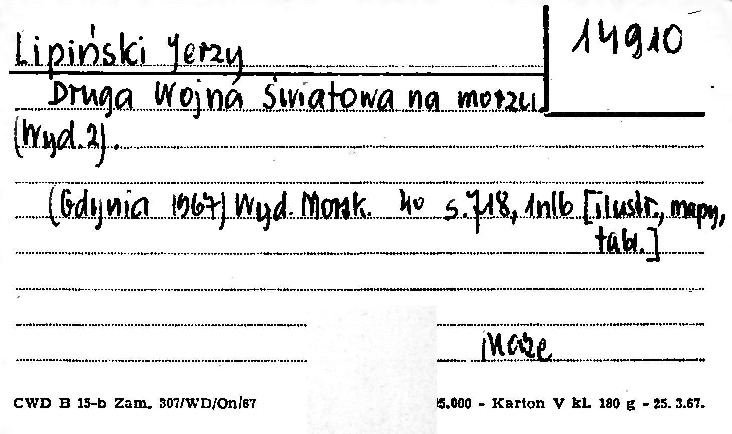 14910
Lipiński Jerzy
Druga Wojna Światowa na morzu.
(Wyd. 2).
(Gdynia 1967) Wyd. Morsk. 4° s. 718, 1nlb [ilustr., mapy,
tabl.]
CWD B 15-b Zam. 307/WD/On/67 5.000 - Karton V kl. 180 g - 25. 3.67.